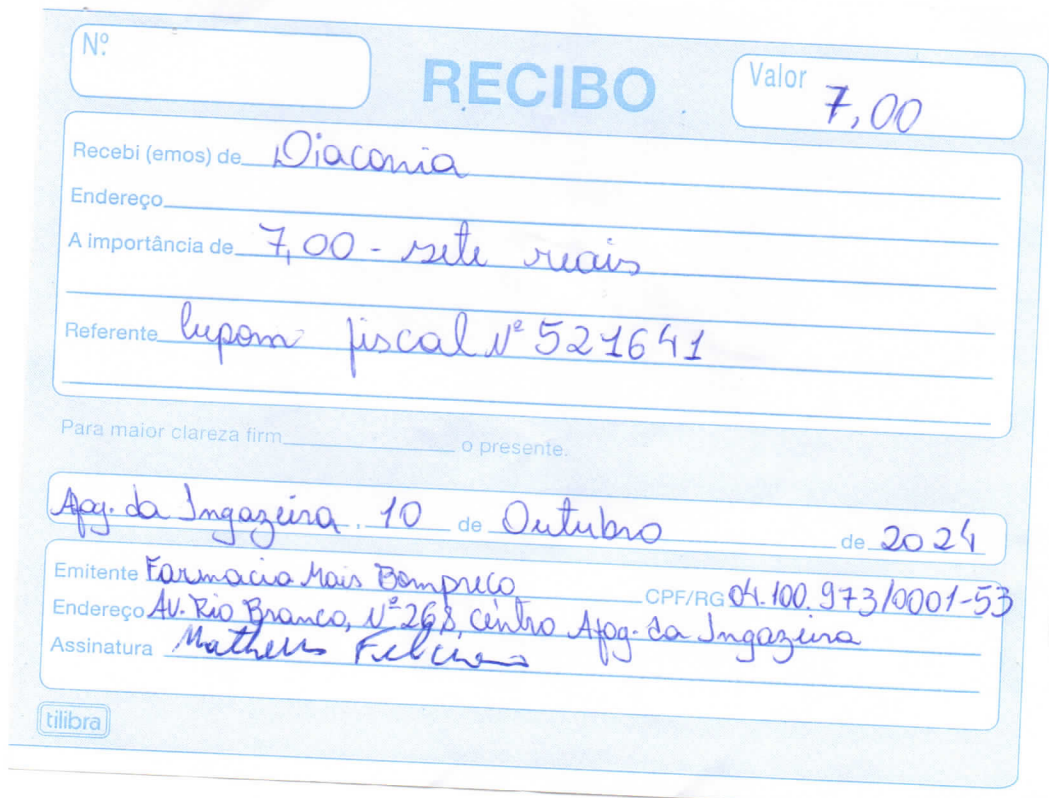 Nº
RECIBO
Valor 7,00
Recebi (emos) de Diaconia
Endereço
A importância de 7,00 - sete reais
Referente Cupom fiscal Nº 521641
Para maior clareza firm o presente.
Afog. da Ingazeira, 10 de Outubro de 2024
Emitente Farmacia Mais Bompreço CPF/RG 04.100.973/0001-53
Endereço AV. Rio Branco, Nº 268, Centro Afog. da Ingazeira
Assinatura Matheus
tilibra